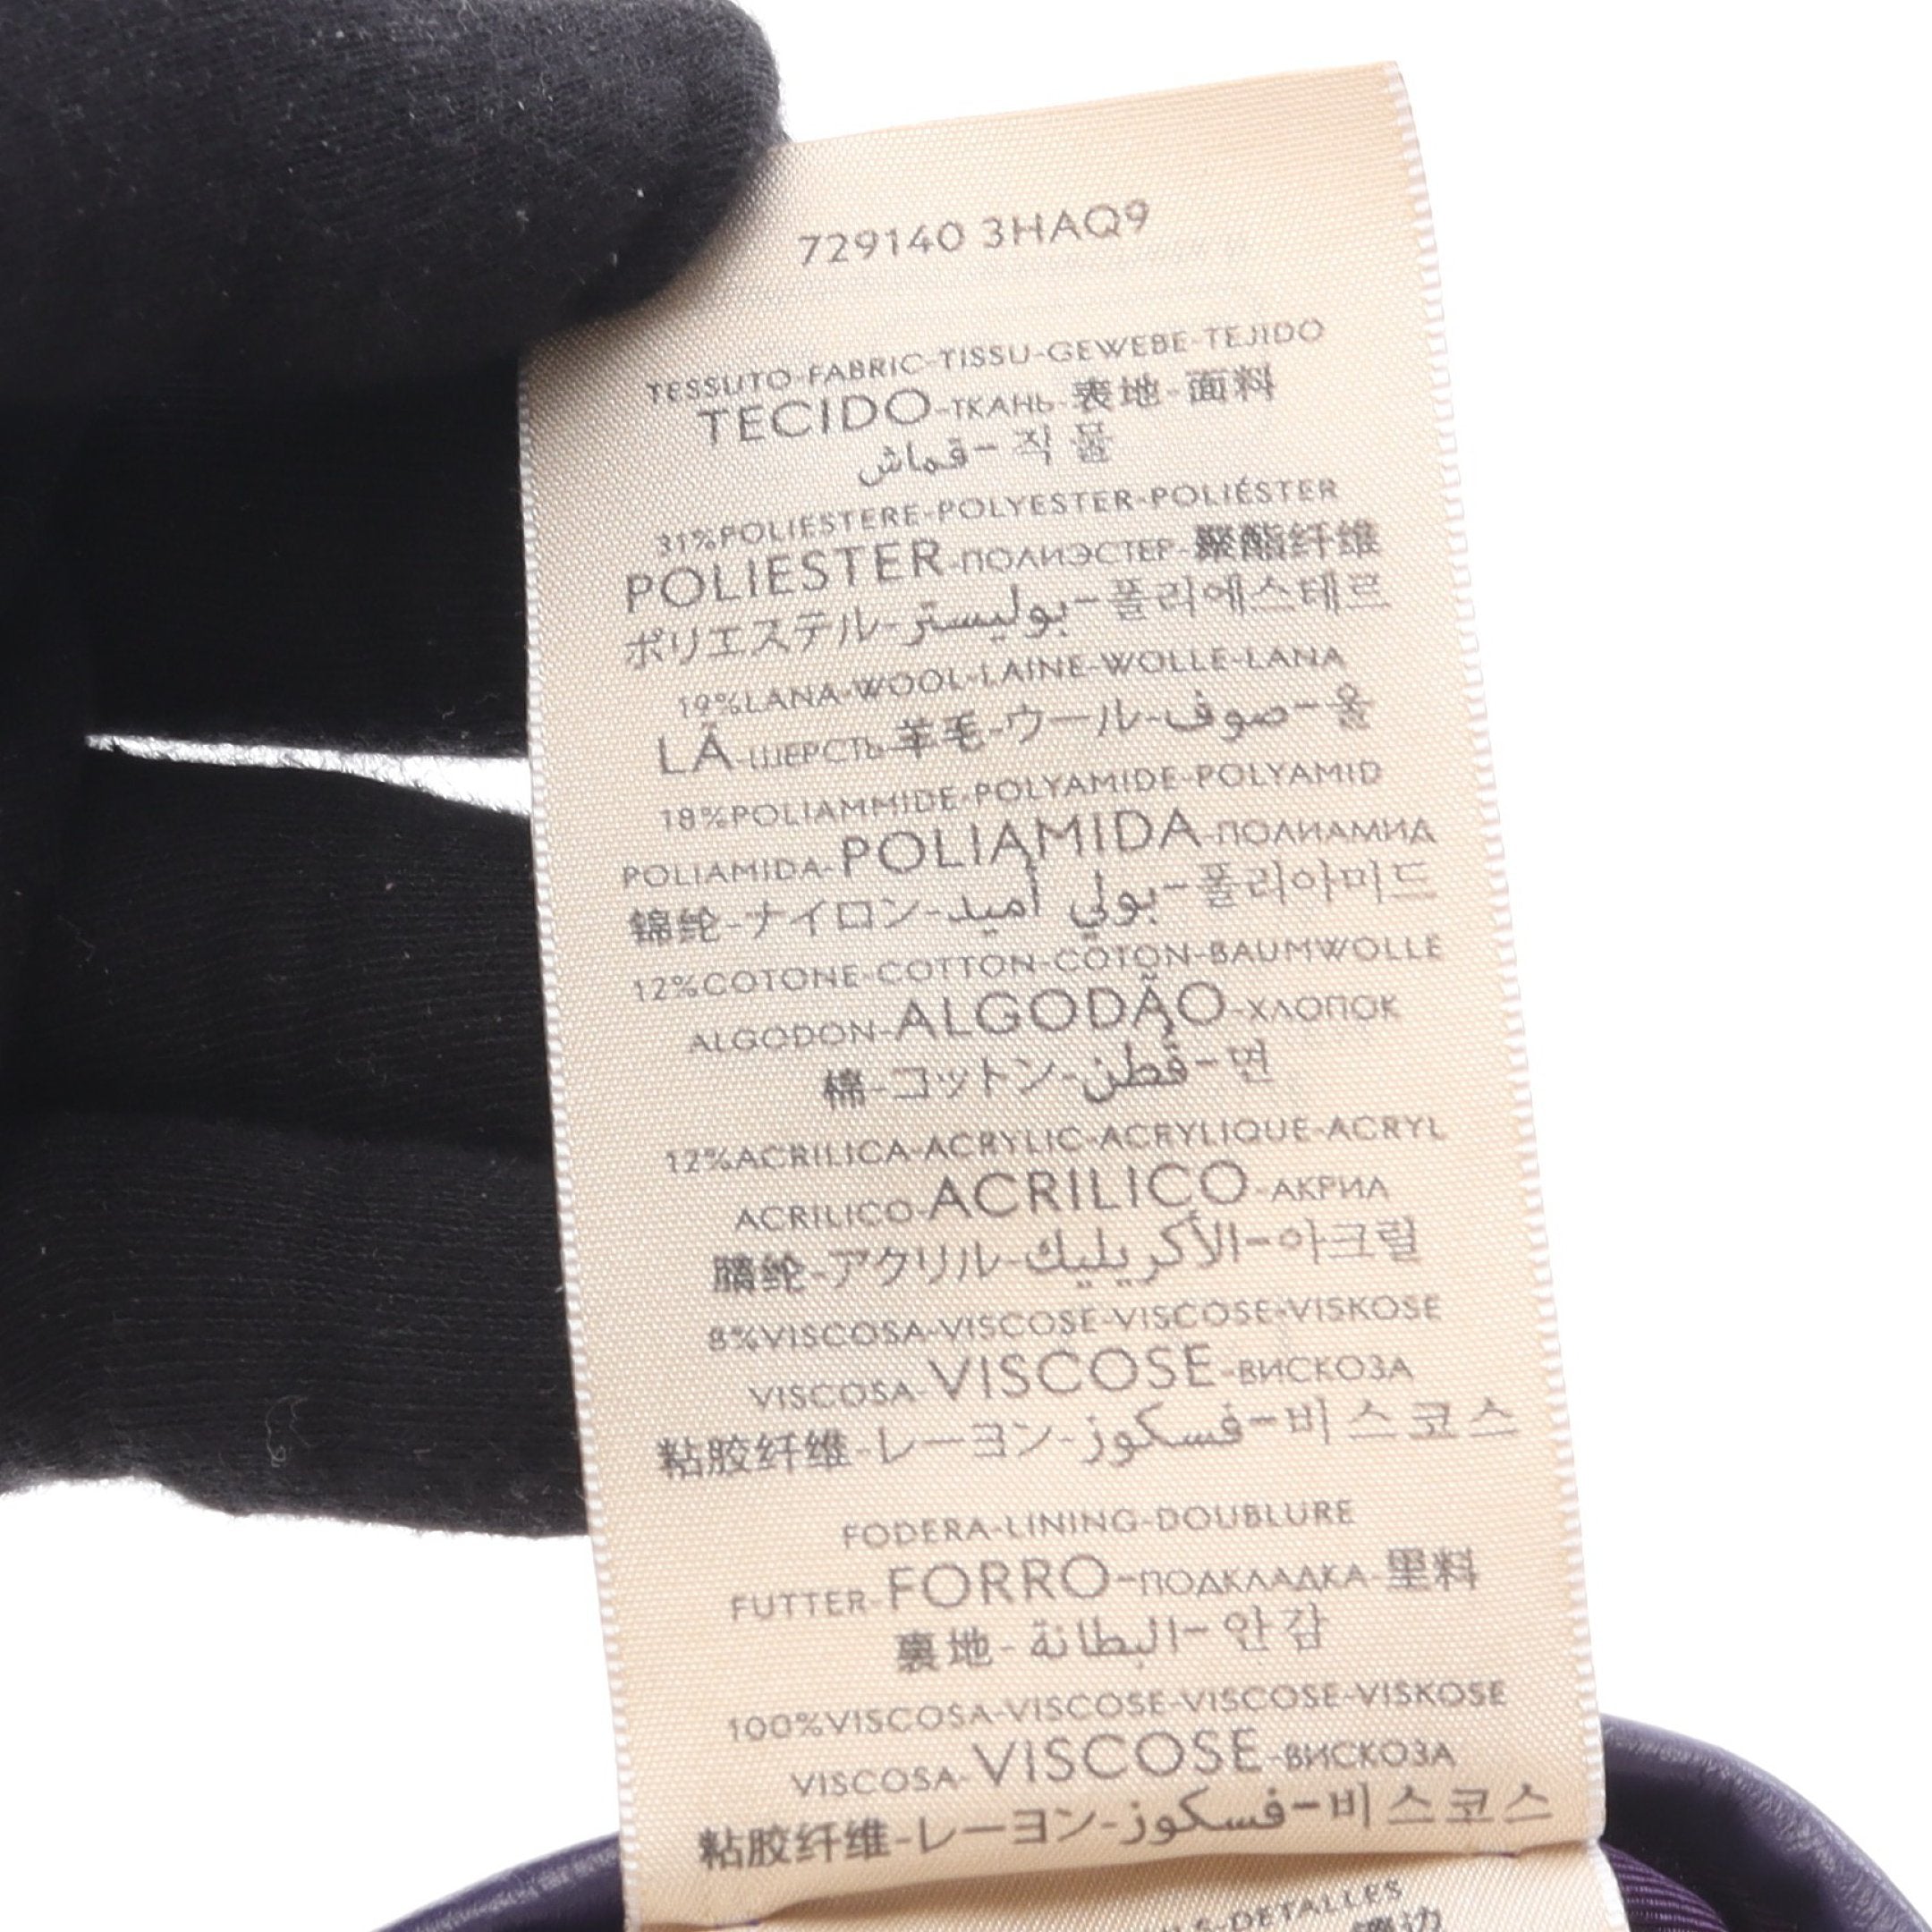 729140 3HAQ9
TESSUTO-FABRIC-TISSU-GEWEBE-TEJIDO
TECIDO-ТКАНЬ-表地-面料
قماش-직물
31%POLIESTERE-POLYESTER-POLIÉSTER
POLIESTER-ПОЛИЭСТЕР-聚酯纤维
ポリエステル-بوليستر-폴리에스테르
19%LANA-WOOL-LAINE-WOLLE-LANA
LÃ-ШЕРСТЬ-羊毛-ウール-صوف-울
18%POLIAMMIDE-POLYAMIDE-POLYAMID
POLIAMIDA-POLIAMIDA-ПОЛИАМИД
锦纶-ナイロン-بولي أميد-폴리아미드
12%COTONE-COTTON-COTON-BAUMWOLLE
ALGODON-ALGODÃO-ХЛОПОК
棉-コットン-قطن-면
12%ACRILICA-ACRYLIC-ACRYLIQUE-ACRYL
ACRILICO-ACRILICO-АКРИЛ
腈纶-アクリル-الأكريليك-아크릴
8%VISCOSA-VISCOSE-VISCOSE-VISKOSE
VISCOSA-VISCOSE-ВИСКОЗА
粘胶纤维-レーヨン-فسكوز-비스코스
FODERA-LINING-DOUBLURE
FUTTER-FORRO-ПОДКЛАДКА-里料
裏地-البطانة-안감
100%VISCOSA-VISCOSE-VISCOSE-VISKOSE
VISCOSA-VISCOSE-ВИСКОЗА
粘胶纤维-レーヨン-فسكوز-비스코스
DETALLES